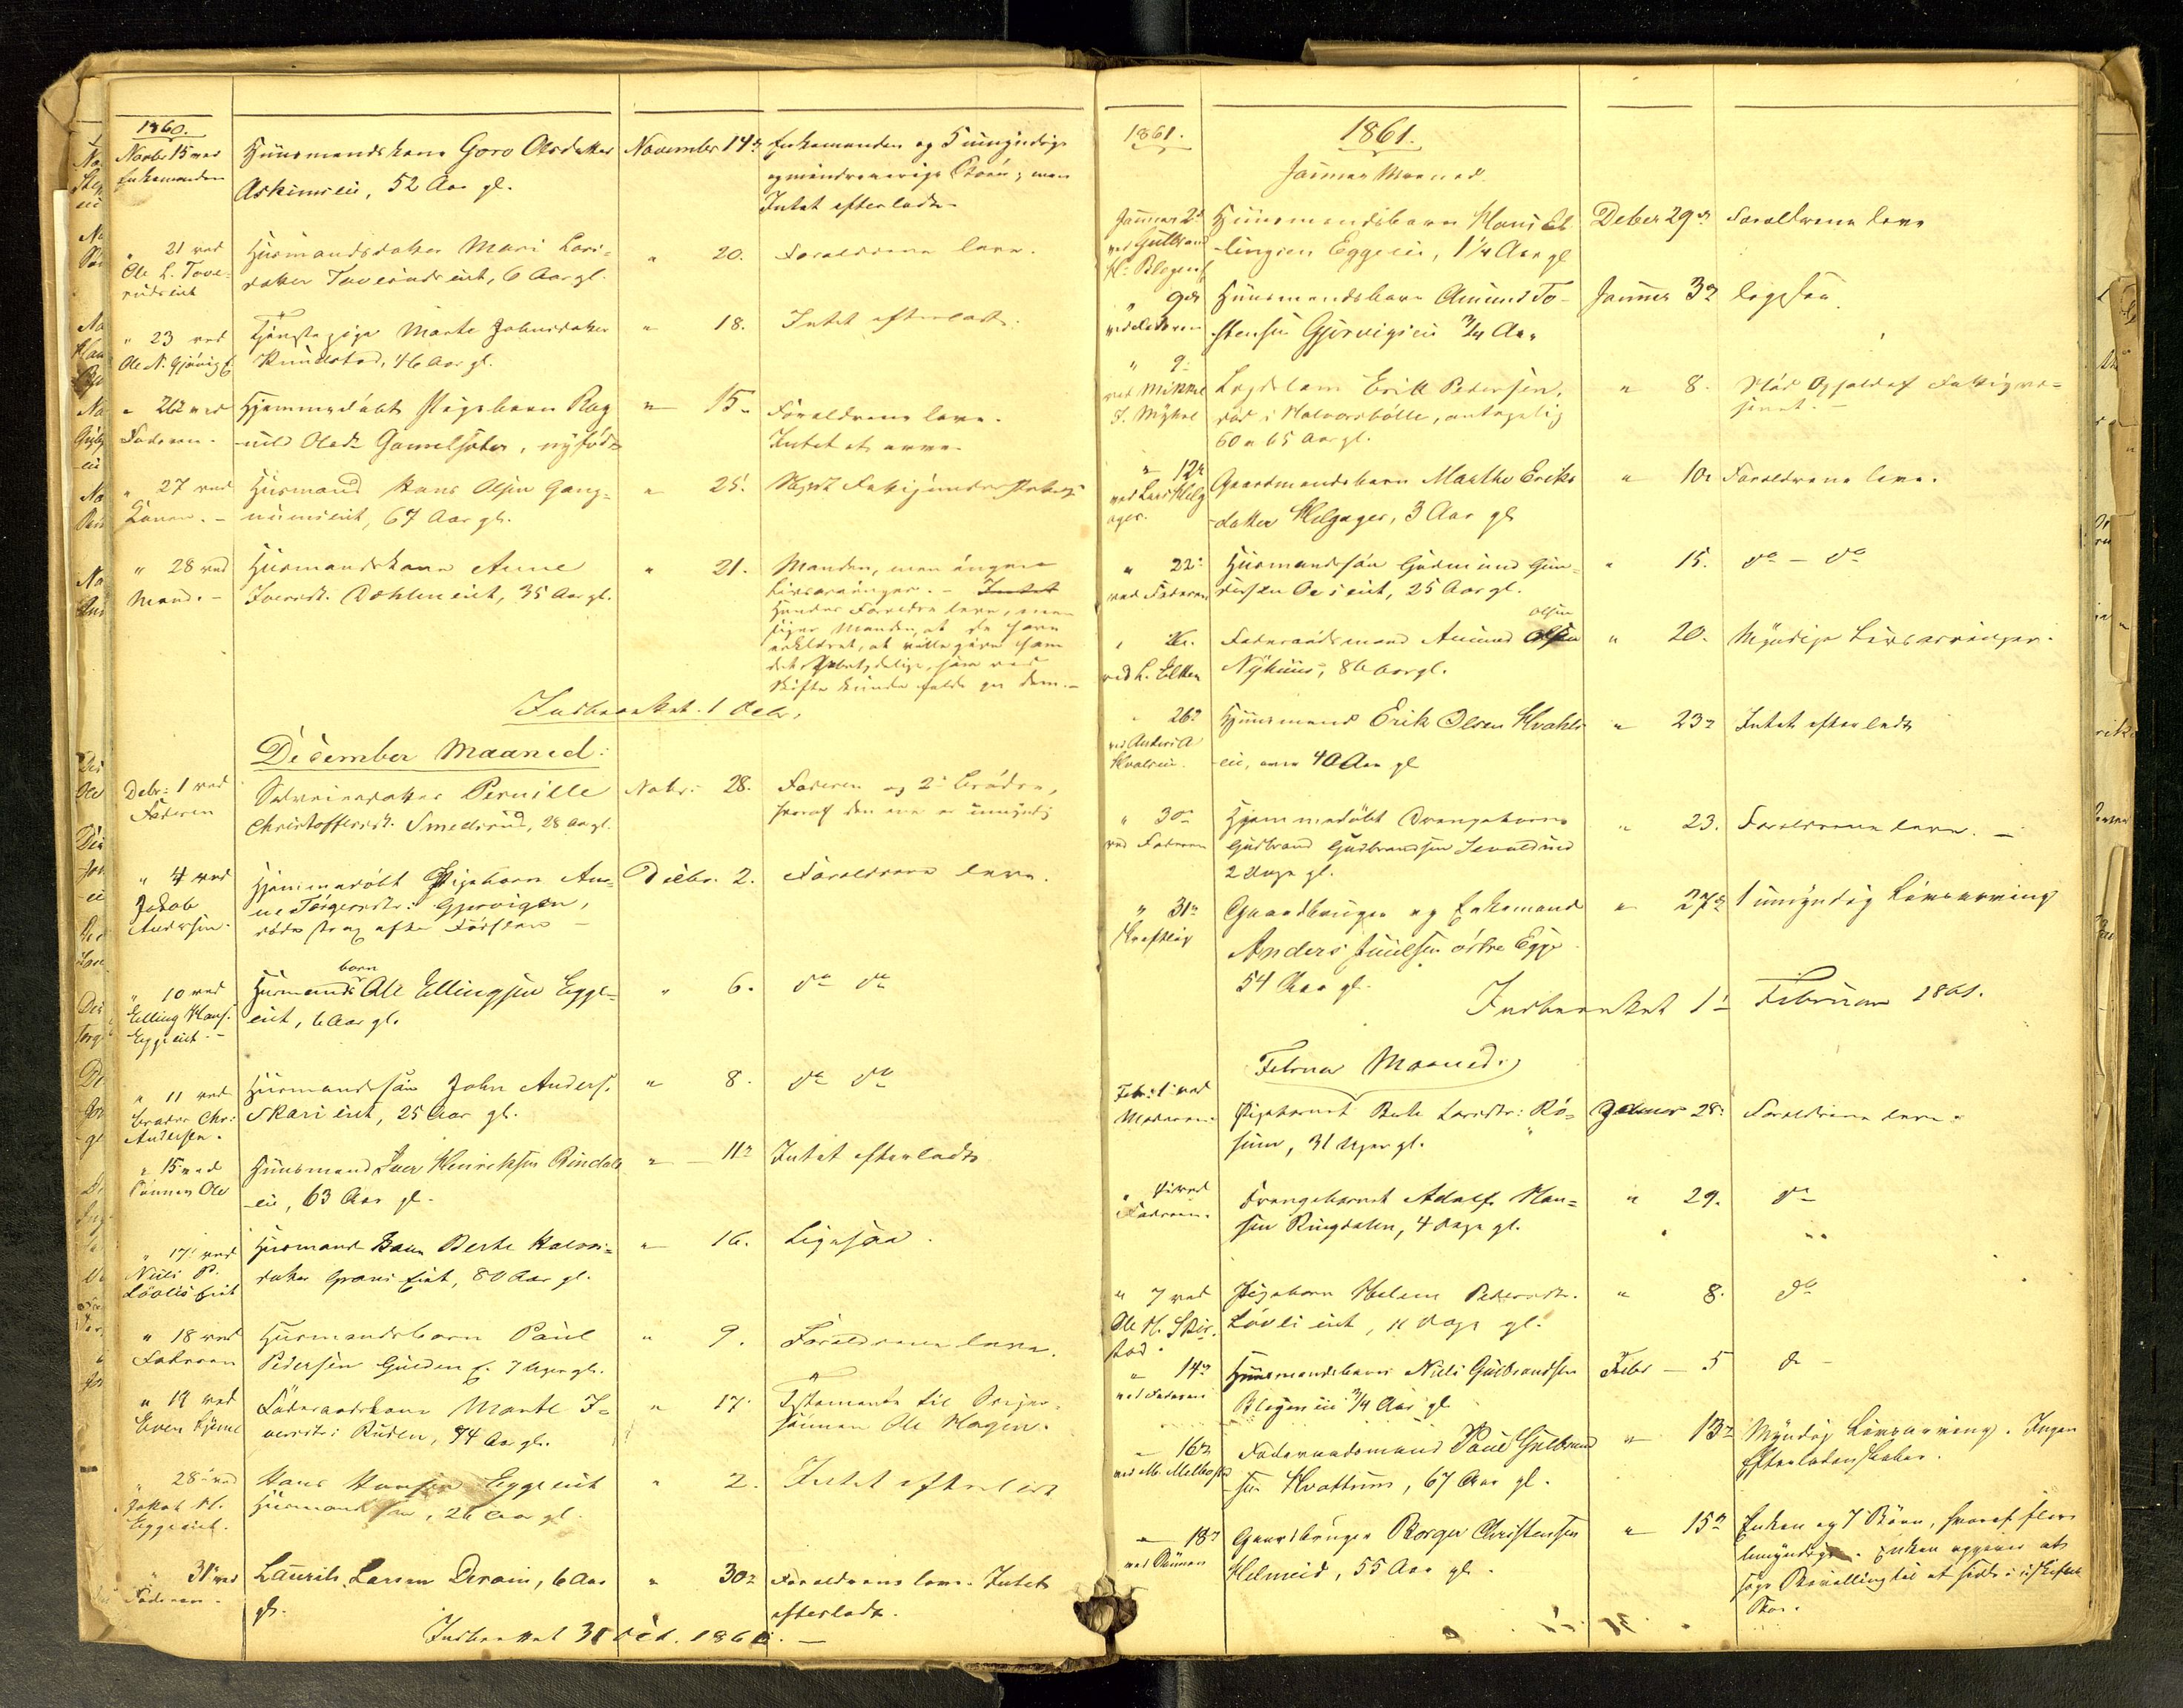 1860.
Novbr 15 ved
Enkemanden
Huusmandskone Goro Olsdatter
Askimeie, 52 Aar gl.
November 14de
Enkemanden og 5 umyndige
og mindreaarige Børn; men
Intet efterladt.
" 21 ved
Ole L. Tove-
rudseiet
Husmandsdatter Mari Lars-
datter Toverudseiet, 6 Aar gl.
" 20.
Forældrene leve.
" 23 ved
Ole N. Gjøvig E.
Tjenstepige Marte Johnsdatter
Knudstad, 46 Aar gl.
" 18.
Intet efterladt.
" 26de ved
Faderen.
Hjemmedøbt Pigebarn Rag
nild Olsdt Gamelsæter, nyfødt
" 15.
Forældrene leve.
Intet at arve.
" 27 ved
Konen. -
Husmand Hans Olsen Gang-
" 25.
67 Aar gl.
" 28 ved
Mand. -
Husmandskone Anne
Iversdt. Dæhleneiet, 35 Aar gl.
" 21.
Manden, men ingen
Livsarvinger. - Intet
Hendes Forældre leve, men
siger Manden, at de have
erklæret, at ville give ham
det Ubetydelige, som ved
Skifte kunde falde paa dem. -
Indberettet 1 Decbr.
December Maaned:
Debr: 1 ved
Faderen
Pernille
Christoffersdt. Smedsrud, 28 Aar gl.
Nobr. 28.
Faderen og 2de Brødre,
hvoraf den ene er umyndig
" 4 ved
Jakob
Andersen.
Hjemmedøbt Pigebarn An-
ne Torgersdtr: Gjervigen,
døde strax efter Fødselen -
Decbr. 2.
Forældrene leve.
" 10 ved
Elling Hans.
Eggeeiet. -
barn
Husmands Ole Ellingsen Egge-
eiet, 6 Aar gl.
" 6.
do do
" 11 ved
Broder Chr:
Andersen.
Husmandssøn John Anders.
Skarieiet, 25 Aar gl.
" 8.
do do
" 15 ved
Sønnen Ole
Huusmand Iver Henriksen Rindals
eie, 63 Aar gl.
" 11te
Intet efterladt
" 17. ved
Niels P.
Løvlieeiet
Husmand Kone Berte Halvors-
datter Grans Eiet, 80 Aar gl.
" 16.
Ligesaa.
" 18 ved
Faderen
Husmandsbarn Paul
Pedersen Gulden E. 7 Uger gl.
" 9.
Forældrene leve.
" 19 ved
Even
Føderaadskone Marte I-
versdtr: Ruden, 74 Aar gl.
" 17.
Testamente til Sviger-
sønnen Ole Hagen.
" 28de ved
Jakob H.
Eggeeiet.
Hans Hansen Eggeeiet
Husmandssøn, 26 Aar gl.
" 2.
Intet efterladt
" 31te ved
Faderen.
Laurits Larsen 6 Aar
gl.
" 30te
Forældrene leve. Intet
efterladt.
Indberettet 31 Dec. 1860. -
1861.
1861.
Januar Maaned
Januar 2de
ved Gulbrand
H. Blegen E.
Huusmandsbarn Hans El-
lingsen Eggeeie, 1 1/4 Aar gl
Deber 29de
Forældrene leve
" 9de
ved Faderen
Huusmandsbarn Amund To-
stensen Gjervigseie 3/4 Aar
Januar 3de
ligesaa.
" 9.
ved Mikkel
I. Mykel
Lægdslem Erik Pedersen,
død i Halvorsbølle, antagelig
60 a 65 Aar gl.
" 8.
Nød Ophold af Fattigvæ-
senet. -
" 12te
ved Lars Helg
ager.
Gaardmandsbarn Marthe Eriks
datter Helgager, 3 Aar gl
" 10de
Forældrene leve.
" 22.
ved Faderen
Husmandssøn Gudmund Gun-
dersen 25 Aar gl.
" 15.
do - do
" 26.
Føderaadsmand Amund Olsen
Olsen
Nyhuus, 86 Aar gl.
" 20.
Myndige Livsarvinger.
" 26de
ved Anders A
Hvalseie.
Huusmand Erik Olsen Hvals
eie, over 40 Aar gl
" 23de
Intet efterladt
" 30te
ved Faderen
Hjemmedøbt Drengebarn
Gudbrand Gudbrandsen
2 Dage gl.
" 23.
Forældrene leve. -
" 31te
Skriftlig
Gaardbruger og Enkemand
Anders Juulsen østre Egge
54 Aar gl.
" 27de
1 umyndig Livsarving
Indberettet 1ste Februar 1861.
Februar Maaned.
Feb: 1 ved
Moderen.
Pigebarnet Berte Larsdtr: Rø-
sum, 31 Uger gl.
Januar 28.
Forældrene leve.
ved
Faderen.
Drengebarnet Adolf Han-
sen Ringdalen, 4 Dage gl.
" 29.
do
" 7 ved
Ole H. Skør-
stad.
Pigebarn Helene Pedersdtr.
Løvlieiet, 11 Dage gl.
" 8.
do
" 14de
ved Faderen
Huusmandsbarn Niels Gulbrandsen
Blegeneie 3/4 Aar gl
Febr - 5
do -
" 16de
Føderaadsmand Poul Gulbrand
sen Hvattum, 67 Aar gl.
" 13de
Myndig Livsarving. Ingen
Efterladenskaber.
" 18de
ved Sønnen
Gaardbruger Borger Christensen
Helmeid, 55 Aar gl.
" 15de
Enken og 7 Børn, hvoraf flere
Umyndige. Enken agter at
søge Bevilling til at sidde i uskiftet
Bo.